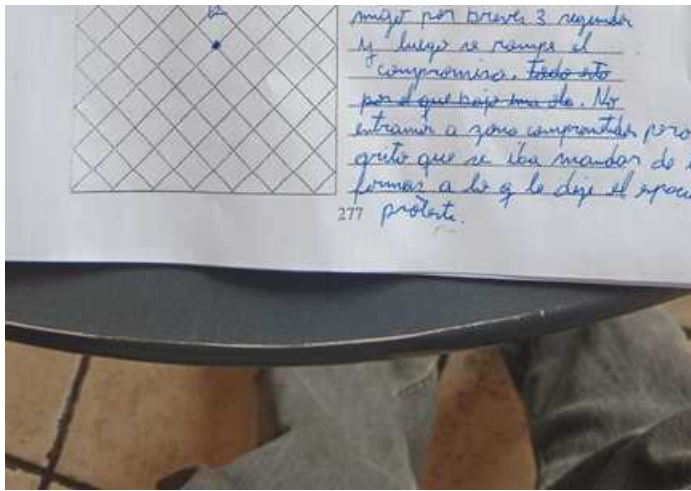 migo por breves 3 segundos
y luego se rompe el
compromiso. Todo esto
por el que bajo una ola. No
entramos a zona comprometida pero
grito que se iba mandar de
formas a lo q le deje el espacio
277 protesta.